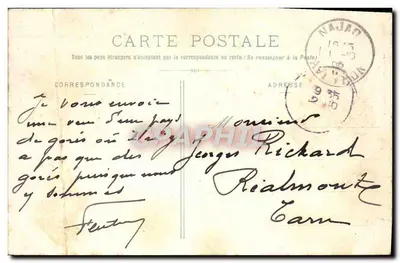 CARTE POSTALE
Tous les pays étrangers n'acceptent pas la correspondance au recto (Se renseigner à la Poste)
CORRESPONDANCE
ADRESSE
NAJAC
Je vous envoie
une vue d'un pays
de gorés où il n'y
a pas que des
gorés puisque nous
y sommes
Monsieur
Georges Rickard
Réalmont
Tarn